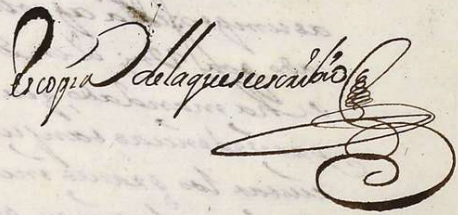 Es copia de la que se escribió